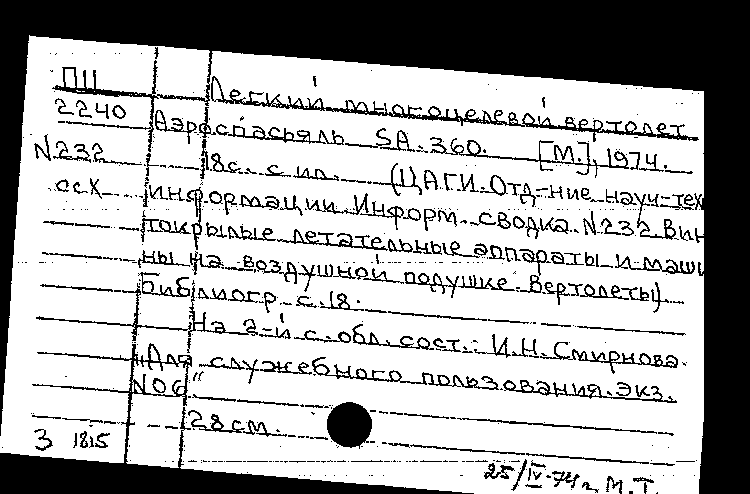 П11 Легкий многоцелевой вертолет
2240 Аэроспасьяль SA.360. [М.], 1974.
N232 18с. с ил. (ЦАГИ. Отд-ние науч-тех
осх информации. Информ. сводка. N232. Вин
токрылые летательные аппараты и маши
ны на воздушной подушке. Вертолеты).
Библиогр с.18.
На 2-й с. обл. сост.: И.Н. Смирнова.
„Для служебного пользования. экз.
N06“
28см.
З 1815
25/IV-74г. М.Т.